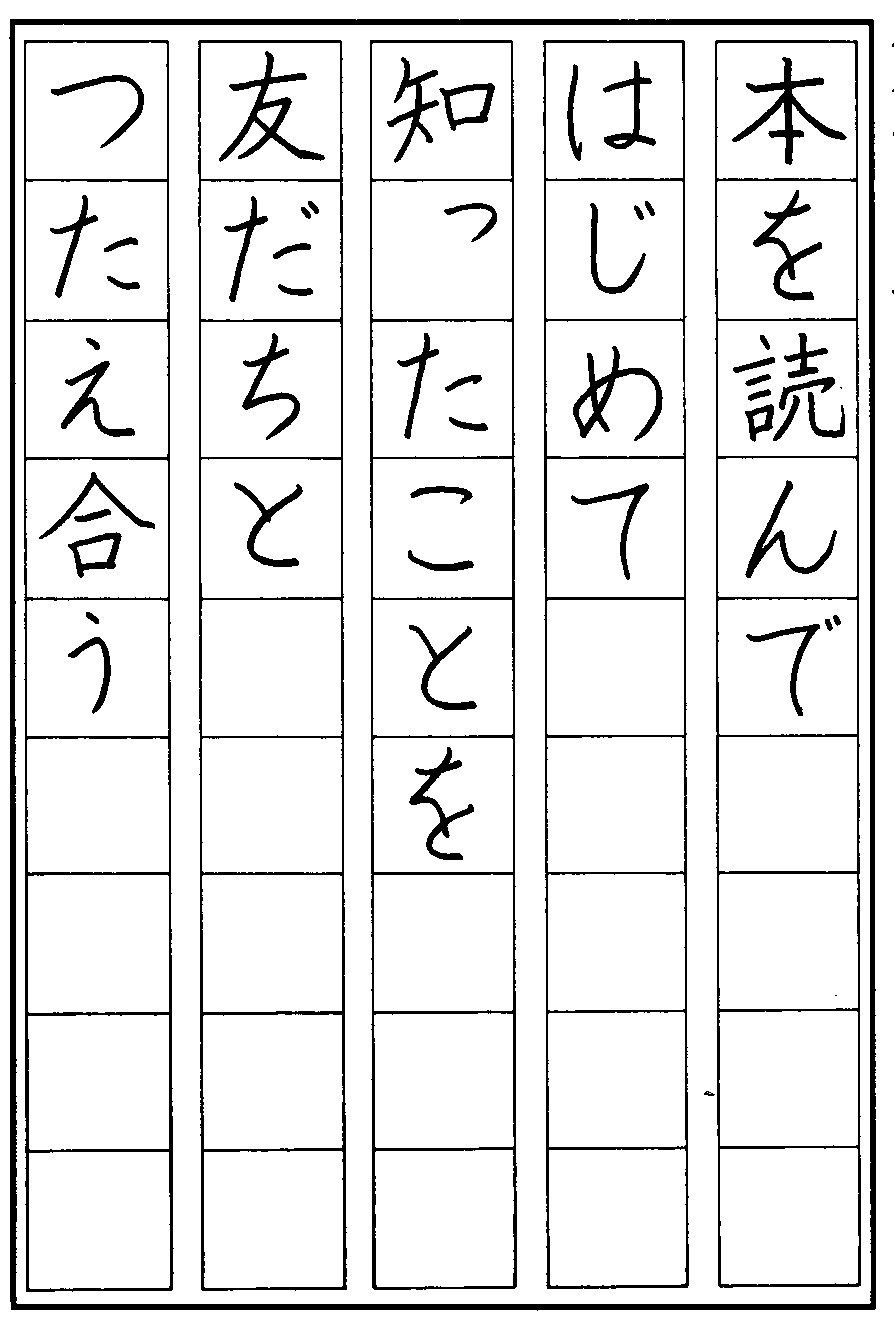 本を読んで
はじめて
知ったことを
友だちと
つたえ合う